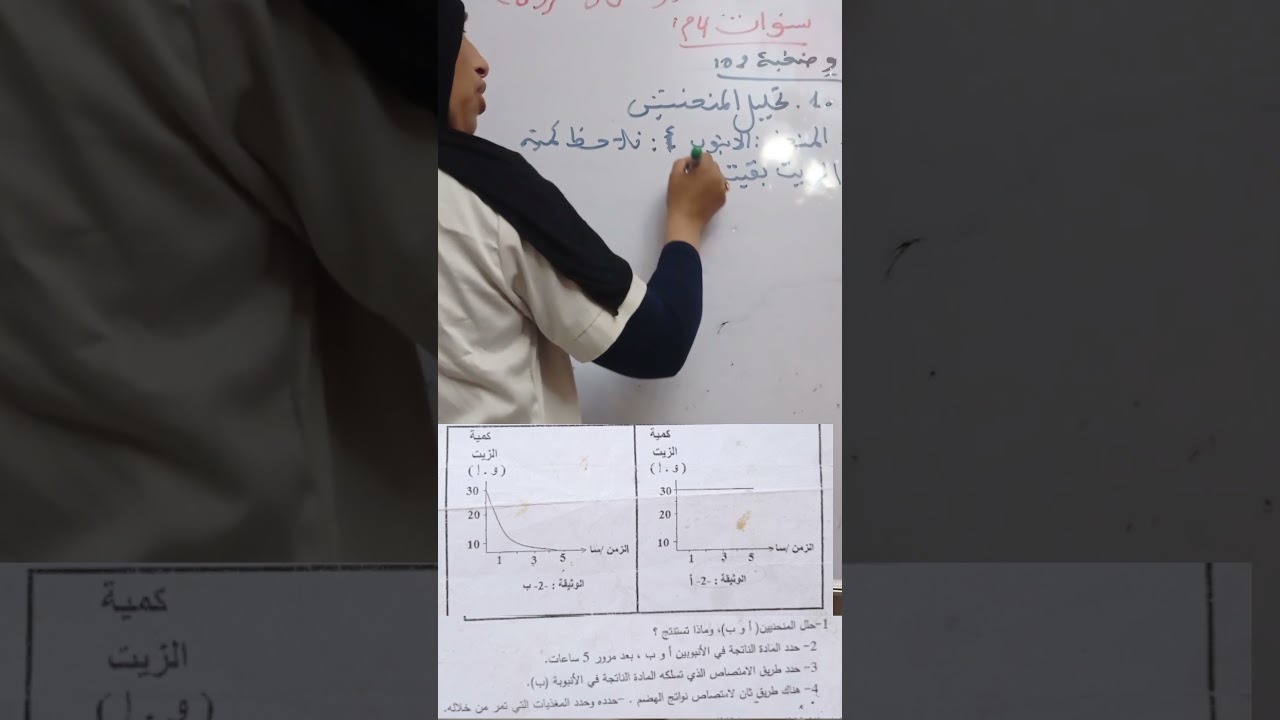 سنوات 4م:
وضعية 102
1. تحليل المنحنيين
المنحنى: الأنبوب أ: نلاحظ كمية
الزيت بقيت
كمية
الزيت
(و.إ)
30
20
10
1 3 5
الزمن/سا
الوثيقة: -2- أ
كمية
الزيت
(و.إ)
30
20
10
1 3 5
الزمن/سا
الوثيقة: -2- ب
1-حلل المنحنيين(أ و ب)، وماذا تستنتج ؟
2- حدد المادة الناتجة في الأنبوبين أ و ب ، بعد مرور 5 ساعات.
3- حدد طريق الامتصاص الذي تسلكه المادة الناتجة في الأنبوبة (ب).
4- هناك طريق ثان لامتصاص نواتج الهضم . -حدده وحدد المغذيات التي تمر من خلاله.
كمية
الزيت
(و.إ)